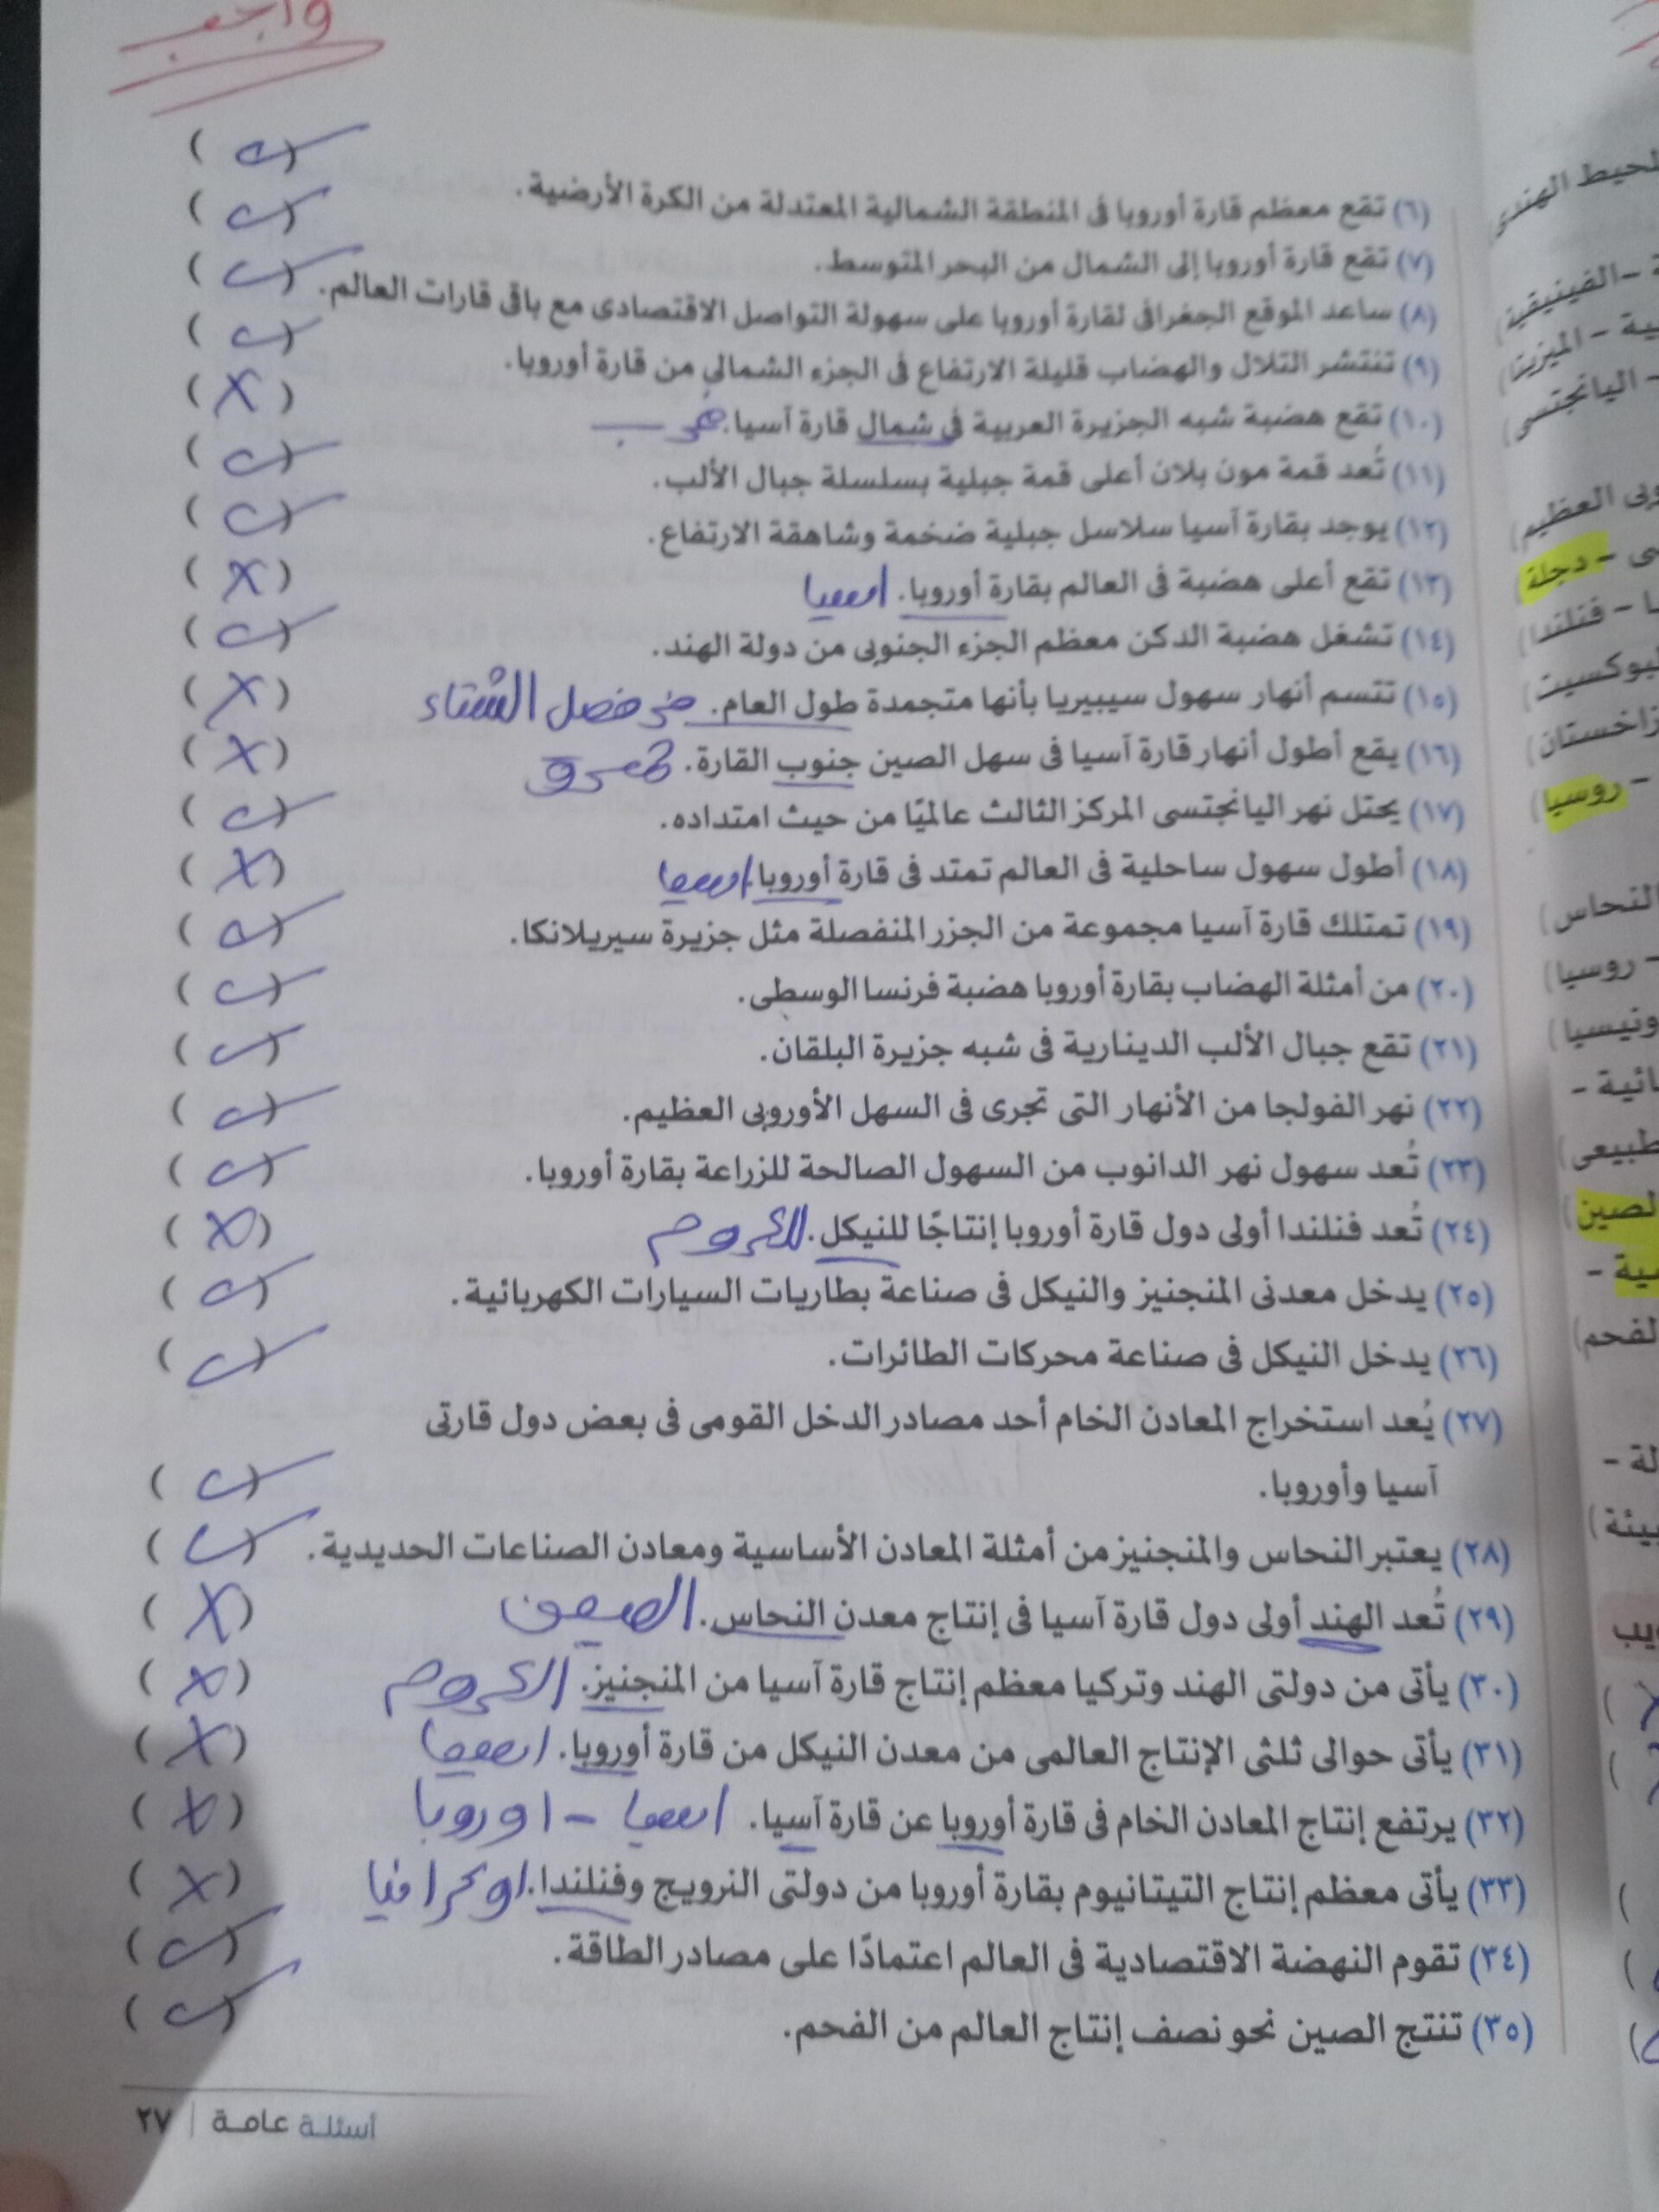 واجب
(٦) تقع معظم قارة أوروبا فى المنطقة الشمالية المعتدلة من الكرة الأرضية. (✓)
(٧) تقع قارة أوروبا إلى الشمال من البحر المتوسط. (✓)
(٨) ساعد الموقع الجغرافى لقارة أوروبا على سهولة التواصل الاقتصادى مع باقى قارات العالم. (✓)
(٩) تنتشر التلال والهضاب قليلة الارتفاع فى الجزء الشمالى من قارة أوروبا. (✓)
(١٠) تقع هضبة شبه الجزيرة العربية فى شمال قارة آسيا. غرب (X)
(١١) تُعد قمة مون بلان أعلى قمة جبلية بسلسلة جبال الألب. (✓)
(١٢) يوجد بقارة آسيا سلاسل جبلية ضخمة وشاهقة الارتفاع. (✓)
(١٣) تقع أعلى هضبة فى العالم بقارة أوروبا. اسيا (X)
(١٤) تشغل هضبة الدكن معظم الجزء الجنوبى من دولة الهند. (✓)
(١٥) تتسم أنهار سهول سيبيريا بأنها متجمدة طول العام. فى فصل الشتاء (X)
(١٦) يقع أطول أنهار قارة آسيا فى سهل الصين جنوب القارة. شرق (X)
(١٧) يحتل نهر اليانجتسى المركز الثالث عالميًا من حيث امتداده. (✓)
(١٨) أطول سهول ساحلية فى العالم تمتد فى قارة أوروبا. اسيا (X)
(١٩) تمتلك قارة آسيا مجموعة من الجزر المنفصلة مثل جزيرة سيريلانكا. (✓)
(٢٠) من أمثلة الهضاب بقارة أوروبا هضبة فرنسا الوسطى. (✓)
(٢١) تقع جبال الألب الدينارية فى شبه جزيرة البلقان. (✓)
(٢٢) نهر الفولجا من الأنهار التى تجرى فى السهل الأوروبى العظيم. (✓)
(٢٣) تُعد سهول نهر الدانوب من السهول الصالحة للزراعة بقارة أوروبا. (✓)
(٢٤) تُعد فنلندا أولى دول قارة أوروبا إنتاجًا للنيكل. للكروم (X)
(٢٥) يدخل معدنى المنجنيز والنيكل فى صناعة بطاريات السيارات الكهربائية. (✓)
(٢٦) يدخل النيكل فى صناعة محركات الطائرات. (✓)
(٢٧) يُعد استخراج المعادن الخام أحد مصادر الدخل القومى فى بعض دول قارتى
آسيا وأوروبا. (✓)
(٢٨) يعتبر النحاس والمنجنيز من أمثلة المعادن الأساسية ومعادن الصناعات الحديدية. (✓)
(٢٩) تُعد الهند أولى دول قارة آسيا فى إنتاج معدن النحاس. الصين (X)
(٣٠) يأتى من دولتى الهند وتركيا معظم إنتاج قارة آسيا من المنجنيز. الكروم (X)
(٣١) يأتى حوالى ثلثى الإنتاج العالمى من معدن النيكل من قارة أوروبا. اسيا (X)
(٣٢) يرتفع إنتاج المعادن الخام فى قارة أوروبا عن قارة آسيا. اسيا - اوروبا (X)
(٣٣) يأتى معظم إنتاج التيتانيوم بقارة أوروبا من دولتى النرويج وفنلندا. اوكرانيا (X)
(٣٤) تقوم النهضة الاقتصادية فى العالم اعتمادًا على مصادر الطاقة. (✓)
(٣٥) تنتج الصين نحو نصف إنتاج العالم من الفحم. (✓)
أسئلة عامة | ٢٧
لمحيط الهندى
الفينيقية)
الميزيتا)
- اليانجتسى)
وبى العظيم)
سى - دجلة)
ا - فنلندا)
لبوكسيت)
زاخستان)
- روسيا)
النحاس)
- روسيا)
ونيسيا)
ائية -
طبيعى)
لصين)
ية -
لفحم)
لة -
بيئة)